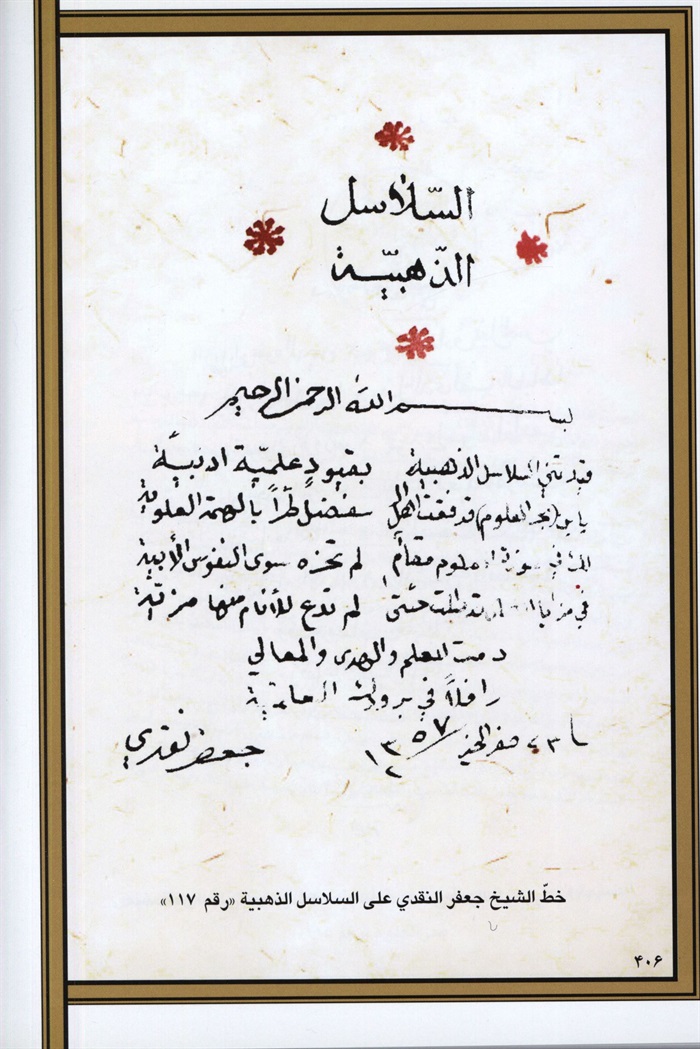 السّلاسل
الذّهبيّة
بسم الله الرحمن الرحيم
قيدتني السلاسل الذهبية بقيودٍ علميّة ادبيةً
يا بن (بحر العلوم) قد فقت اهل الفضل طرّاً بالهمة العلوية
لك في العلوم مقام لم تحزه سوى النفوس الأبية
في مزايا قد ملكت حتى لم تدع للأنام منها مزيّة
دمت للعلم والهدى والمعالي
رافلاً في برودك
صفر الخير ١٣٥٧
جعفر نقدي
خطّ الشيخ جعفر النقدي على السلاسل الذهبية «رقم ١١٧»
٤٠٦